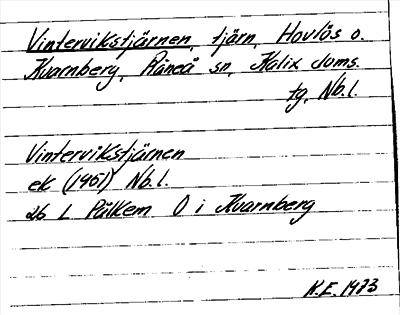 Vintervikstjärnen, tjärn, Hovlös o.
Kvarnberg, Råneå sn, Kalix doms.
tg, Nb.l.
Vintervikstjärnen
ek (1961) Nb.l.
26 L Pålkem O i Kvarnberg
K.E. 1973